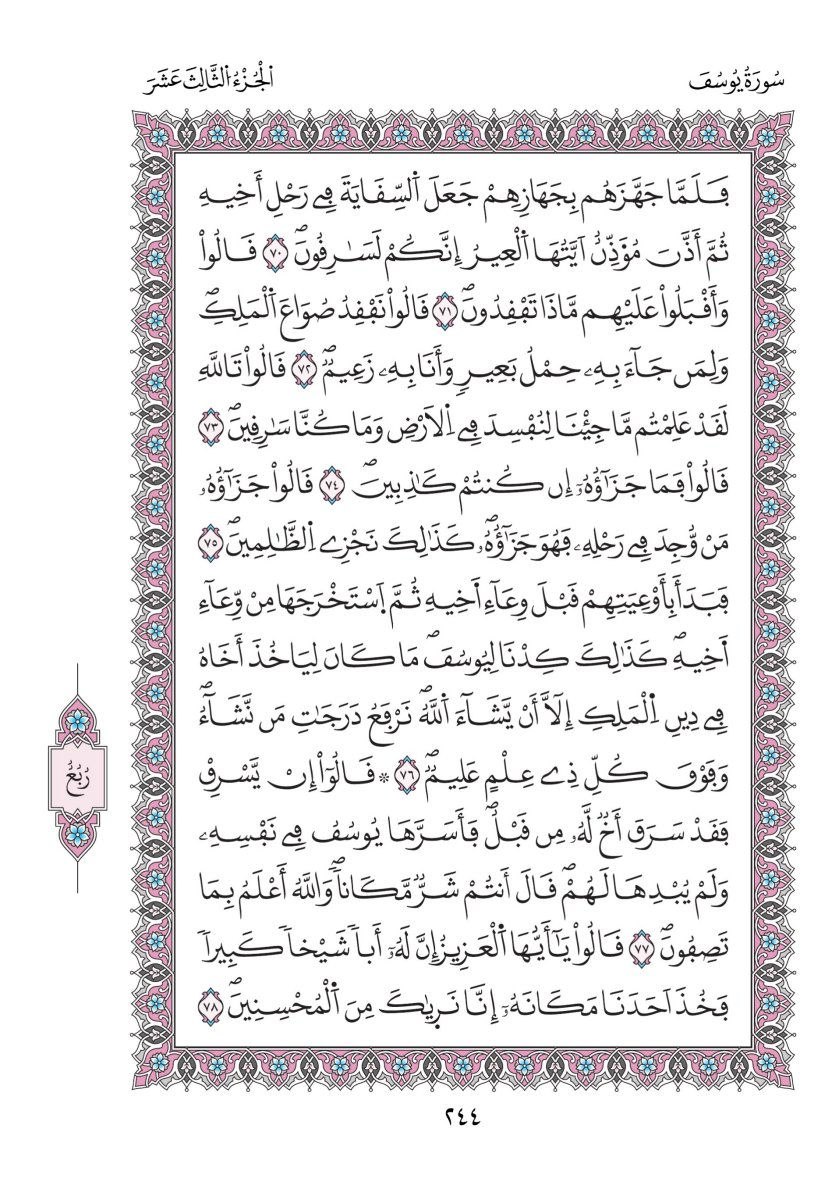 سُورَةُ يُوسُفَ
اَلْجُزْءُ اُلثَّالِثَ عَشَرَ
فَلَمَّا جَهَّزَهُم بِجَهَازِهِمْ جَعَلَ اَلسِّقَايَةَ فِي رَحْلِ أَخِيهِ
ثُمَّ أَذَّنَ مُؤَذِّنٌ اَيَّتُهَا اَلْعِيرُ إِنَّكُمْ لَسَٰرِقُونَۖ ٧٠ قَالُواْ
وَأَقْبَلُواْ عَلَيْهِم مَّاذَا تَفْقِدُونَۖ ٧١ قَالُواْ نَفْقِدُ صُوَاعَ اَلْمَلِكِۖ
وَلِمَن جَآءَ بِهِۦ حِمْلُ بَعِيرٖ وَأَنَا بِهِۦ زَعِيمٞۖ ٧٢ قَالُواْ تَاللَّهِ
لَقَدْ عَلِمْتُم مَّا جِئْنَا لِنُفْسِدَ فِے اِلَارْضِ وَمَا كُنَّا سَٰرِقِينَۖ ٧٣
قَالُواْ فَمَا جَزَٰٓؤُهُۥٓ إِن كُنتُمْ كَٰذِبِينَۖ ٧٤ قَالُواْ جَزَٰٓؤُهُۥ
مَنْ وُّجِدَ فِے رَحْلِهِۦ فَهُوَ جَزَٰٓؤُهُۥۖ كَذَٰلِكَ نَجْزِے اِلظَّٰلِمِينَۖ ٧٥
فَبَدَأَ بِأَوْعِيَتِهِمْ قَبْلَ وِعَآءِ اَ۬خِيهِ ثُمَّ اَ۪سْتَخْرَجَهَا مِنْ وِّعَآءِ
اَ۬خِيهِۖ كَذَٰلِكَ كِدْنَا لِيُوسُفَۖ مَا كَانَ لِيَاخُذَ أَخَاهُ
فِے دِينِ اِلْمَلِكِ إِلَّآ أَنْ يَّشَآءَ اَ۬للَّهُۖ نَرْفَعُ دَرَجَٰتِ مَن نَّشَآءُۖ
وَفَوْقَ كُلِّ ذِے عِلْمٍ عَلِيمٞۖ ٧٦ ۞ قَالُوٓاْ إِنْ يَّسْرِقْ
فَقَدْ سَرَقَ أَخٞ لَّهُۥ مِن قَبْلُۖ فَأَسَرَّهَا يُوسُفُ فِے نَفْسِهِۦ
وَلَمْ يُبْدِهَا لَهُمْۖ قَالَ أَنتُمْ شَرّٞ مَّكَاناٗۖ وَاللَّهُ أَعْلَمُ بِمَا
تَصِفُونَۖ ٧٧ قَالُواْ يَٰٓأَيُّهَا اَ۬لْعَزِيزُ إِنَّ لَهُۥٓ أَباٗ شَيْخاٗ كَبِيراٗ
فَخُذَ اَحَدَنَا مَكَانَهُۥٓ إِنَّا نَر۪يٰكَ مِنَ اَ۬لْمُحْسِنِينَۖ ٧٨
رُبُعُ
٢٤٤